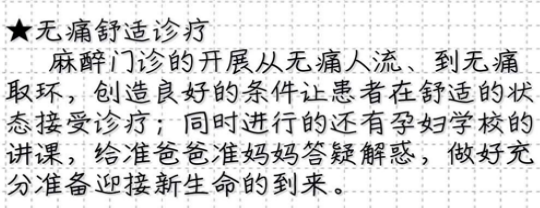 ★无痛舒适诊疗
麻醉门诊的开展从无痛人流、到无痛
取环，创造良好的条件让患者在舒适的状
态接受诊疗；同时进行的还有孕妇学校的
讲课，给准爸爸准妈妈答疑解惑，做好充
分准备迎接新生命的到来。